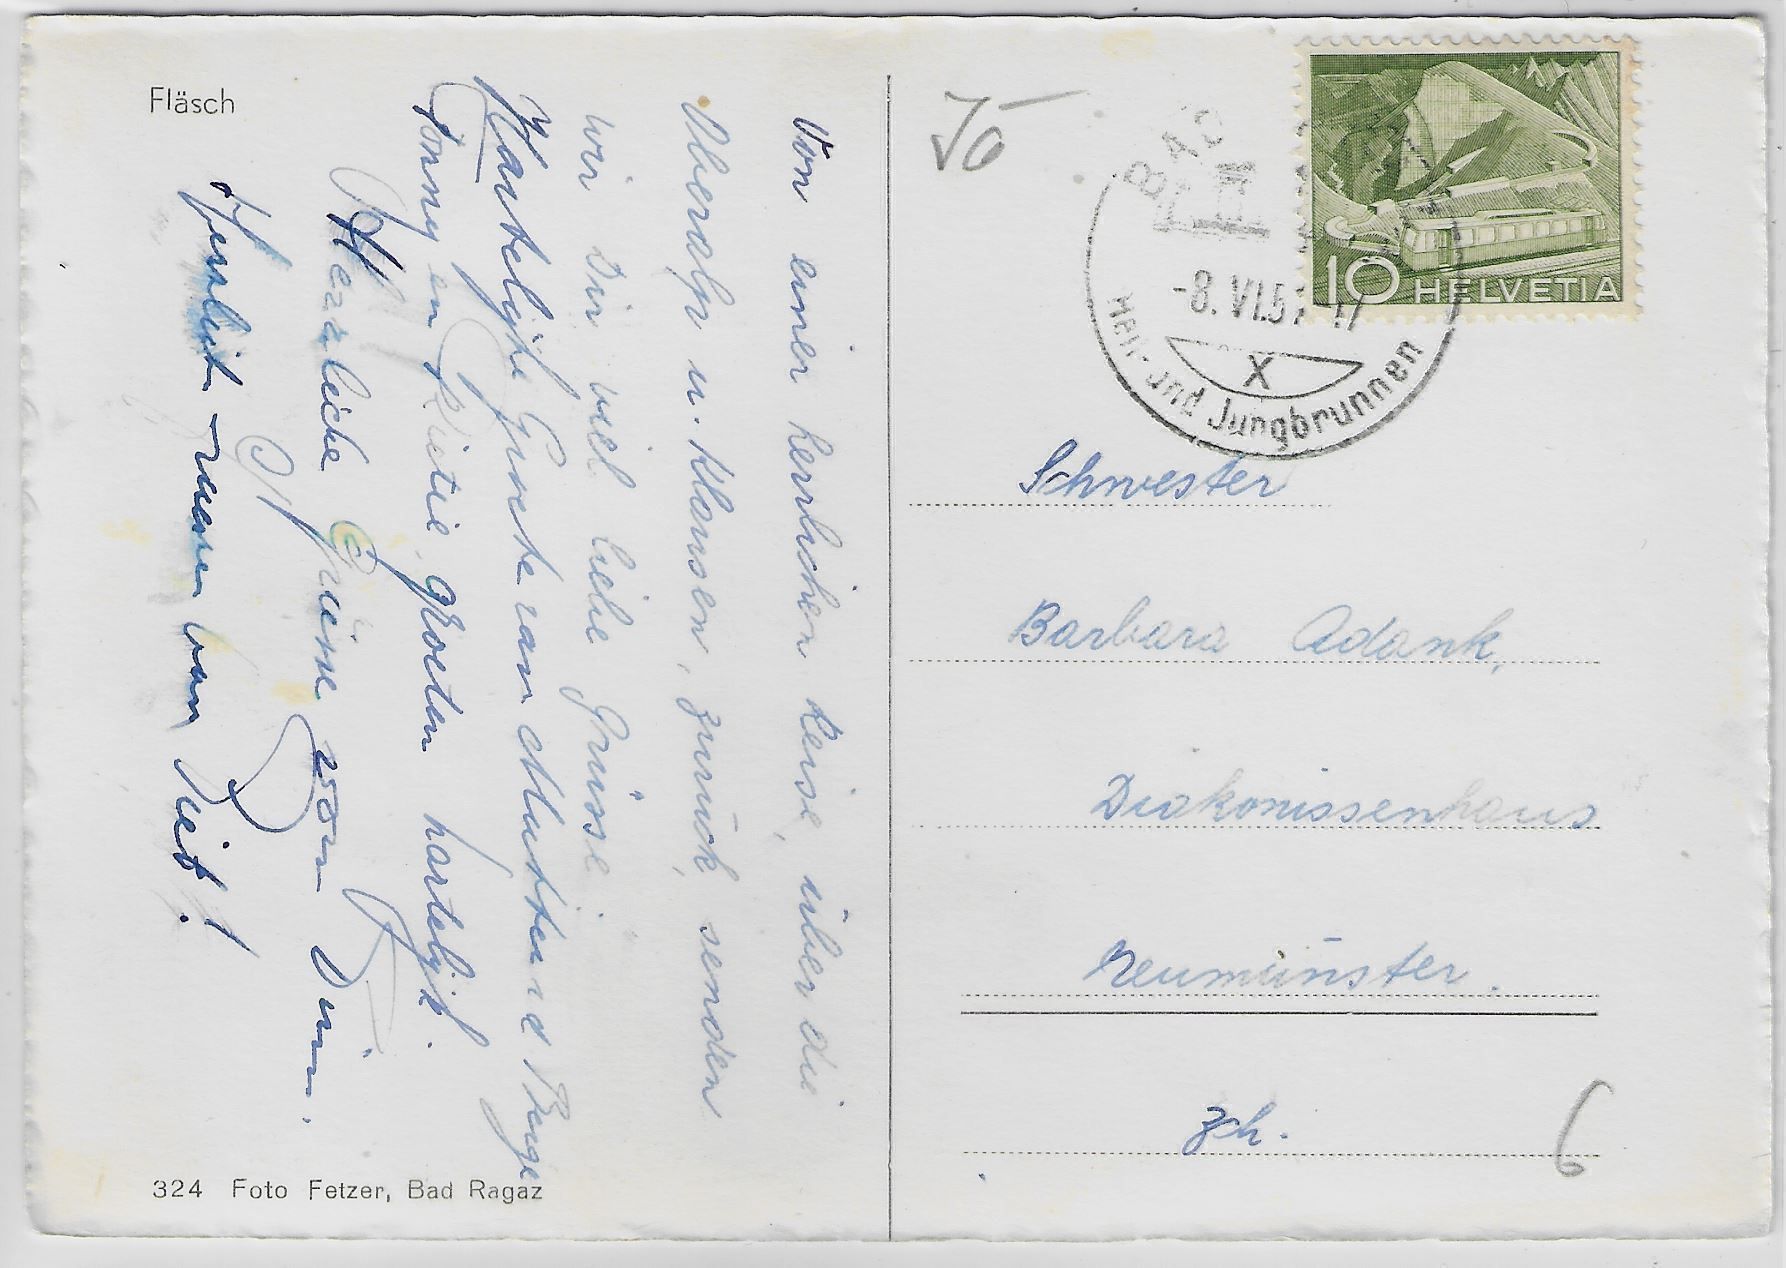 Fläsch
Von einer herrlichen Reise, über die
Oberalp u. Klausen, zurück, senden
wir Dir viel liebe Grüsse
Hartelijke Groete van
Jonny en Rietie groeten hartelijk.
Herzliche Grüsse von
324 Foto Fetzer, Bad Ragaz
BAD
-8. VI.5
Heil- und Jungbrunnen
X
10 HELVETIA
Schwester
Barbara Adank,
Diakonissenhaus
Neumünster.
Zh.
6